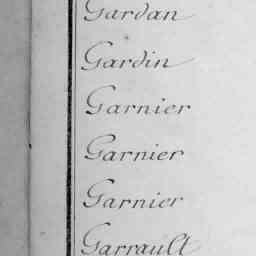 Gardan
Gardin
Garnier
Garnier
Garnier
Garrault